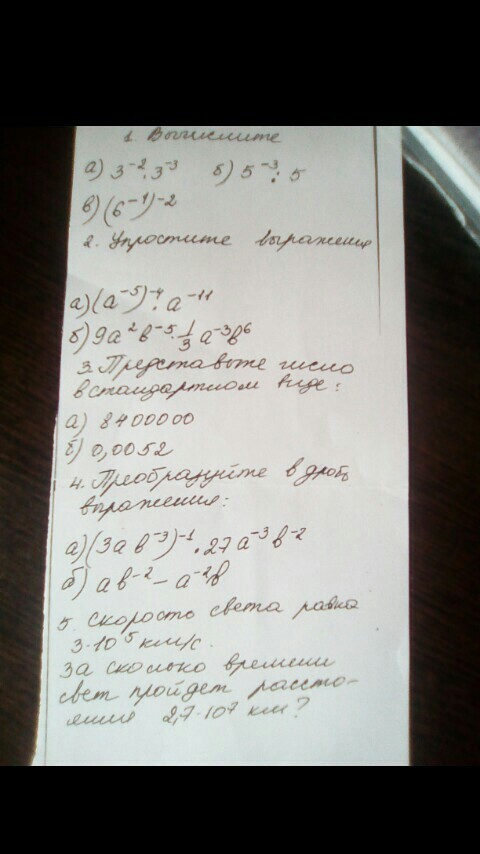 1. Вычислите
а) 3⁻² · 3⁻³ б) 5⁻³ : 5
в) (6⁻¹)⁻²
2. Упростите выражения
а) (a⁻⁵)⁻⁴ · a⁻¹¹
б) 9a²b⁻⁵ · 1/3 a⁻³b⁶
3. Представьте число
в стандартном виде:
а) 8400000
б) 0,0052
4. Преобразуйте в дробь
выражения:
а) (3ab⁻³)⁻¹ · 27a⁻³b⁻²
б) ab⁻² – a⁻²b
5. Скорость света равна
3·10⁵ км/с.
За сколько времени
свет пройдет рассто-
яние 2,7·10⁷ км?